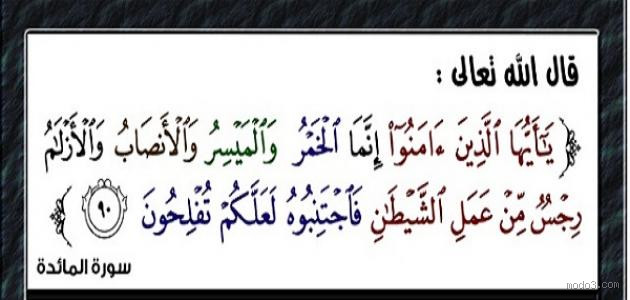 قال الله تعالى :
﴿ يَٰٓأَيُّهَا ٱلَّذِينَ ءَامَنُوٓا۟ إِنَّمَا ٱلْخَمْرُ وَٱلْمَيْسِرُ وَٱلْأَنصَابُ وَٱلْأَزْلَٰمُ
رِجْسٌ مِّنْ عَمَلِ ٱلشَّيْطَٰنِ فَٱجْتَنِبُوهُ لَعَلَّكُمْ تُفْلِحُونَ ٩٠ ﴾
سورة المائدة
modo3.com